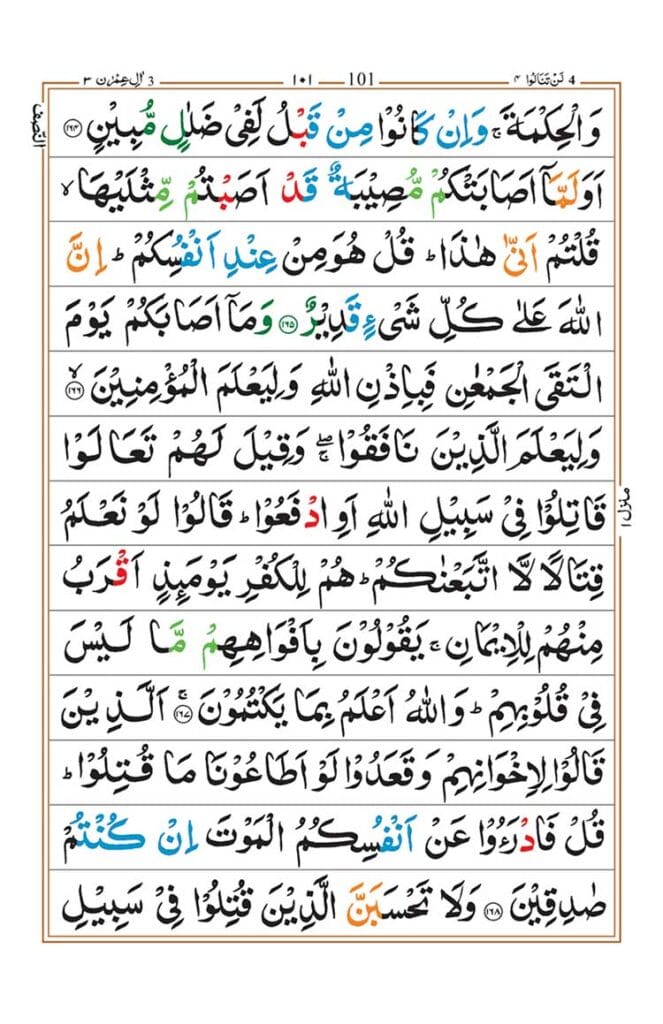 لَنْ تَنَالُوا ٤ 4 101 ١٠١ 3 اٰلِ عِمْرٰن ٣
وَالْحِكْمَةَ ۚ وَاِنْ كَانُوْا مِنْ قَبْلُ لَفِیْ ضَلٰلٍ مُّبِیْنٍ ﴿۱۶۴﴾
اَوَلَمَّاۤ اَصَابَتْكُمْ مُّصِیْبَةٌ قَدْ اَصَبْتُمْ مِّثْلَیْهَا ۙ
قُلْتُمْ اَنّٰی هٰذَا ؕ قُلْ هُوَ مِنْ عِنْدِ اَنْفُسِكُمْ ؕ اِنَّ
اللّٰهَ عَلٰی كُلِّ شَیْءٍ قَدِیْرٌ ﴿۱۶۵﴾ وَمَاۤ اَصَابَكُمْ یَوْمَ
الْتَقَی الْجَمْعٰنِ فَبِاِذْنِ اللّٰهِ وَلِیَعْلَمَ الْمُؤْمِنِیْنَ ﴿۱۶۶﴾ ۙ
وَلِیَعْلَمَ الَّذِیْنَ نَافَقُوْا ۖۚ وَقِیْلَ لَهُمْ تَعَالَوْا
قَاتِلُوْا فِیْ سَبِیْلِ اللّٰهِ اَوِ ادْفَعُوْا ؕ قَالُوْا لَوْ نَعْلَمُ
قِتَالًا لَّا اتَّبَعْنٰكُمْ ؕ هُمْ لِلْكُفْرِ یَوْمَئِذٍ اَقْرَبُ
مِنْهُمْ لِلْاِیْمَانِ ۚ یَقُوْلُوْنَ بِاَفْوَاهِهِمْ مَّا لَیْسَ
فِیْ قُلُوْبِهِمْ ؕ وَاللّٰهُ اَعْلَمُ بِمَا یَكْتُمُوْنَ ﴿۱۶۷﴾ ۚ اَلَّذِیْنَ
قَالُوْا لِاِخْوَانِهِمْ وَقَعَدُوْا لَوْ اَطَاعُوْنَا مَا قُتِلُوْا ؕ
قُلْ فَادْرَءُوْا عَنْ اَنْفُسِكُمُ الْمَوْتَ اِنْ كُنْتُمْ
صٰدِقِیْنَ ﴿۱۶۸﴾ وَلَا تَحْسَبَنَّ الَّذِیْنَ قُتِلُوْا فِیْ سَبِیْلِ
النّصف
منزل ۱